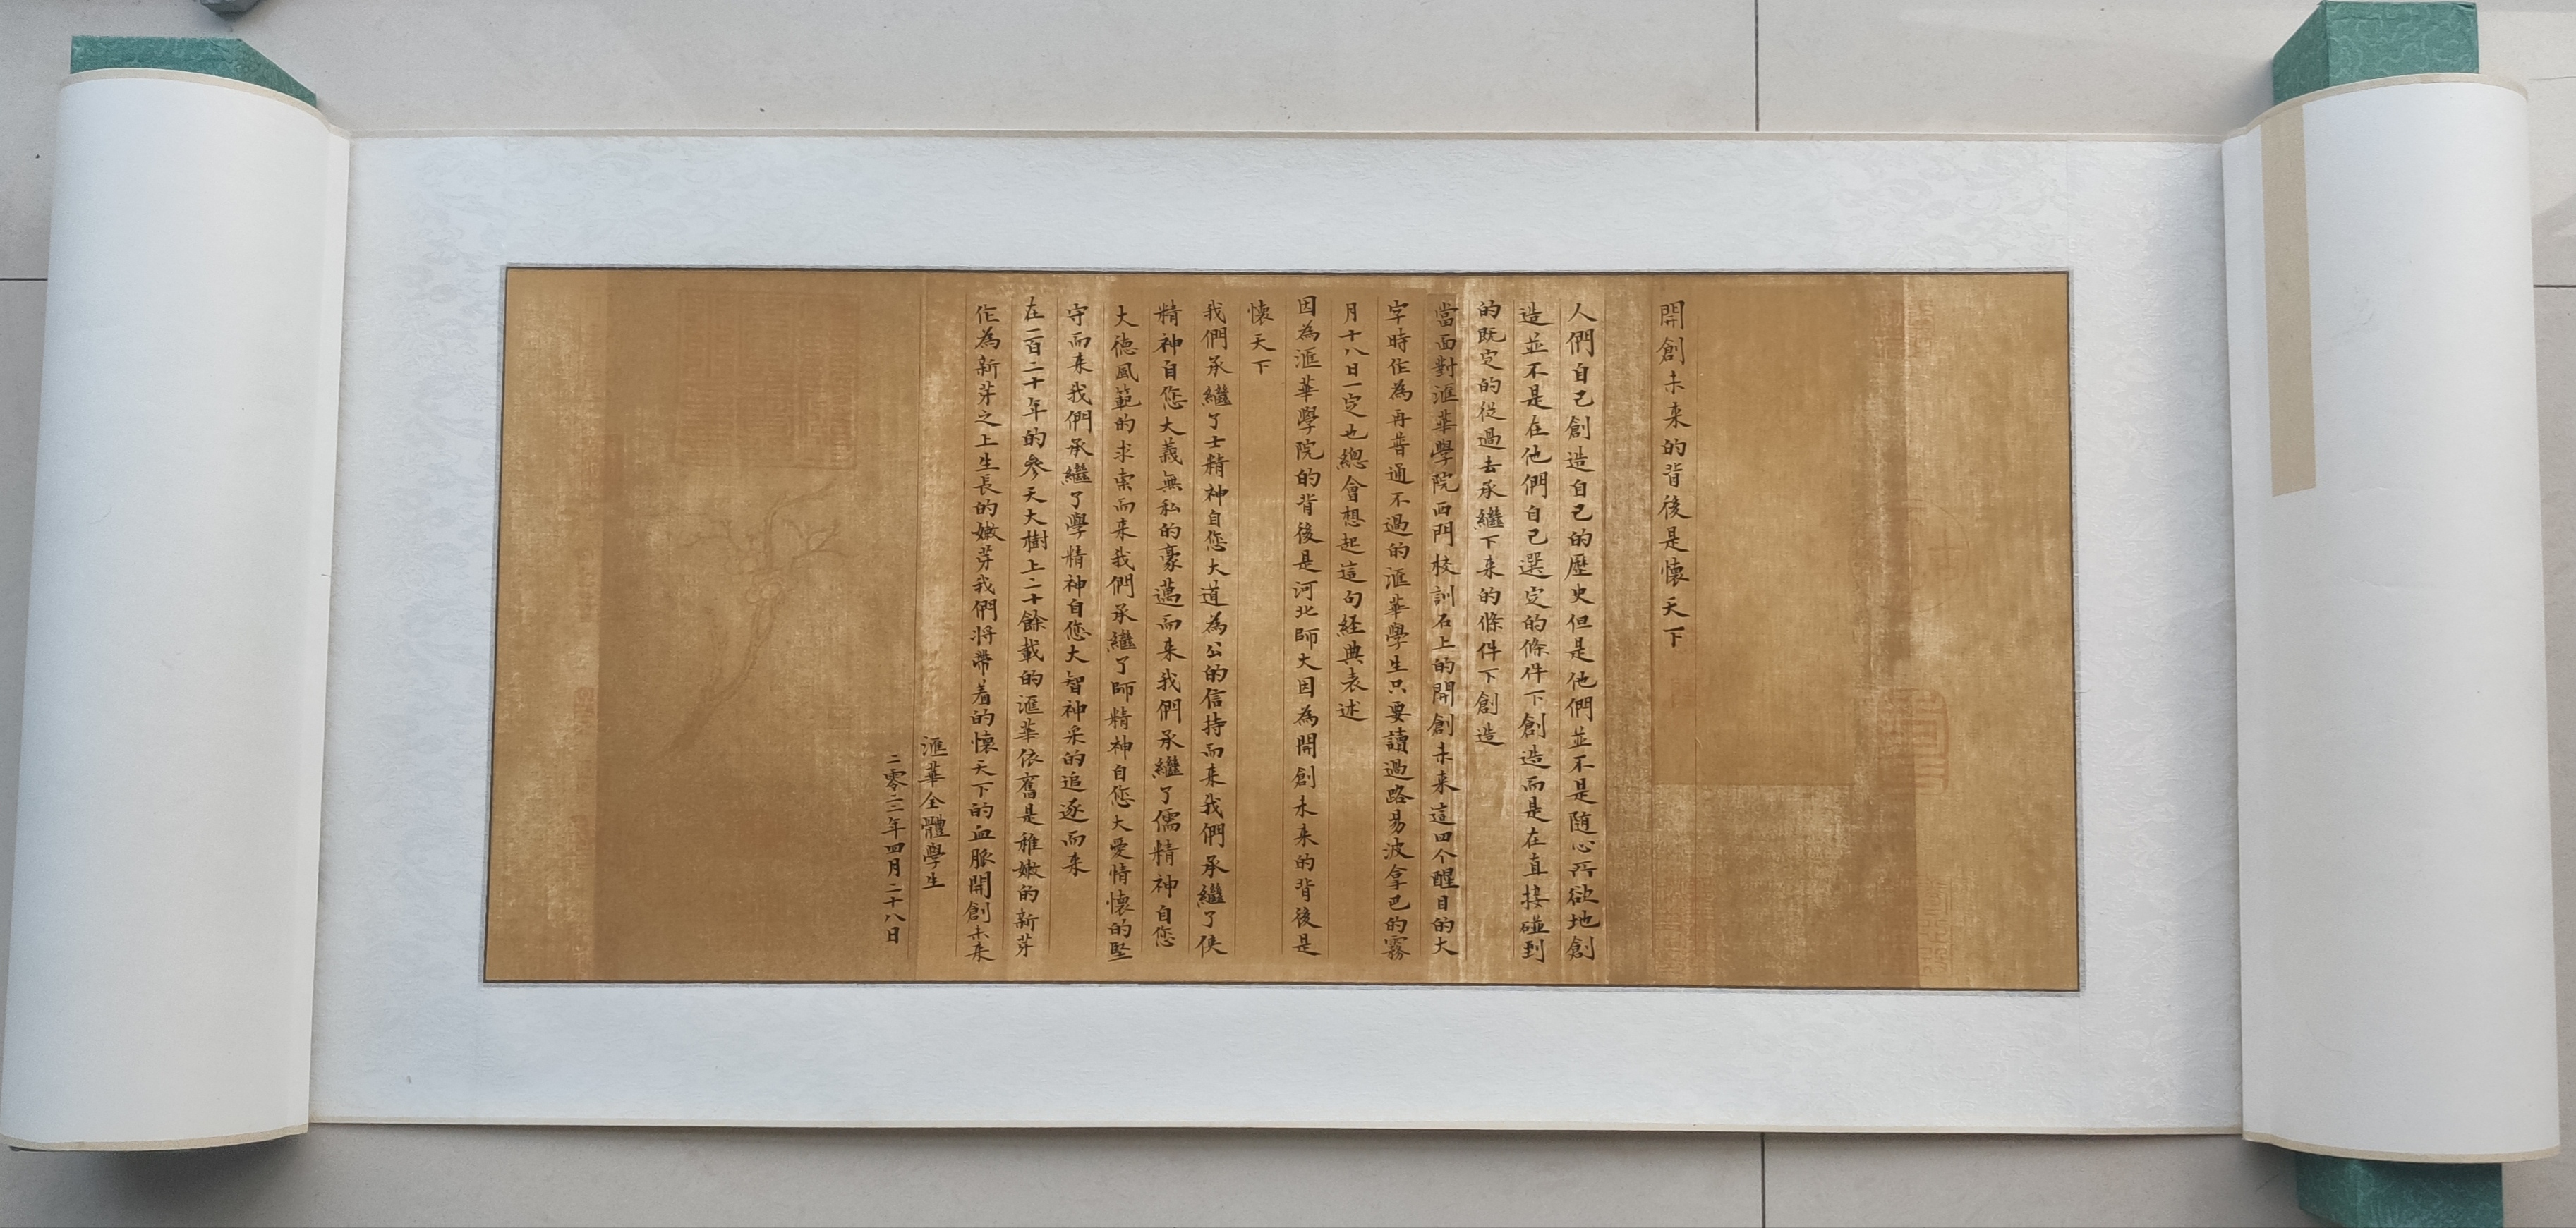 開創未来的背後是懷天下
人們自己創造自己的歷史但是他們並不是随心所欲地創
造並不是在他們自己選定的條件下創造而是在直接碰到
的既定的從過去承繼下来的條件下創造
當面對滙華學院西門校訓石上的開創未来這四个醒目的大
字時作為再普通不過的滙華學生只要讀過路易波拿巴的霧
月十八日一定也總會想起這句経典表述
因為滙華學院的背後是河北師大因為開創未来的背後是
懷天下
我們承繼了士精神自您大道為公的信持而来我們承繼了俠
精神自您大義無私的豪邁而来我們承繼了儒精神自您
大德風範的求索而来我們承繼了師精神自您大愛情懷的堅
守而来我們承繼了學精神自您大智神采的追逐而来
在一百二十年的參天大樹上二十餘載的滙華依舊是稚嫩的新芽
作為新芽之上生長的嫩芽我們将帶着的懷天下的血脈開創未来
滙華全體學生
二零二二年四月二十八日